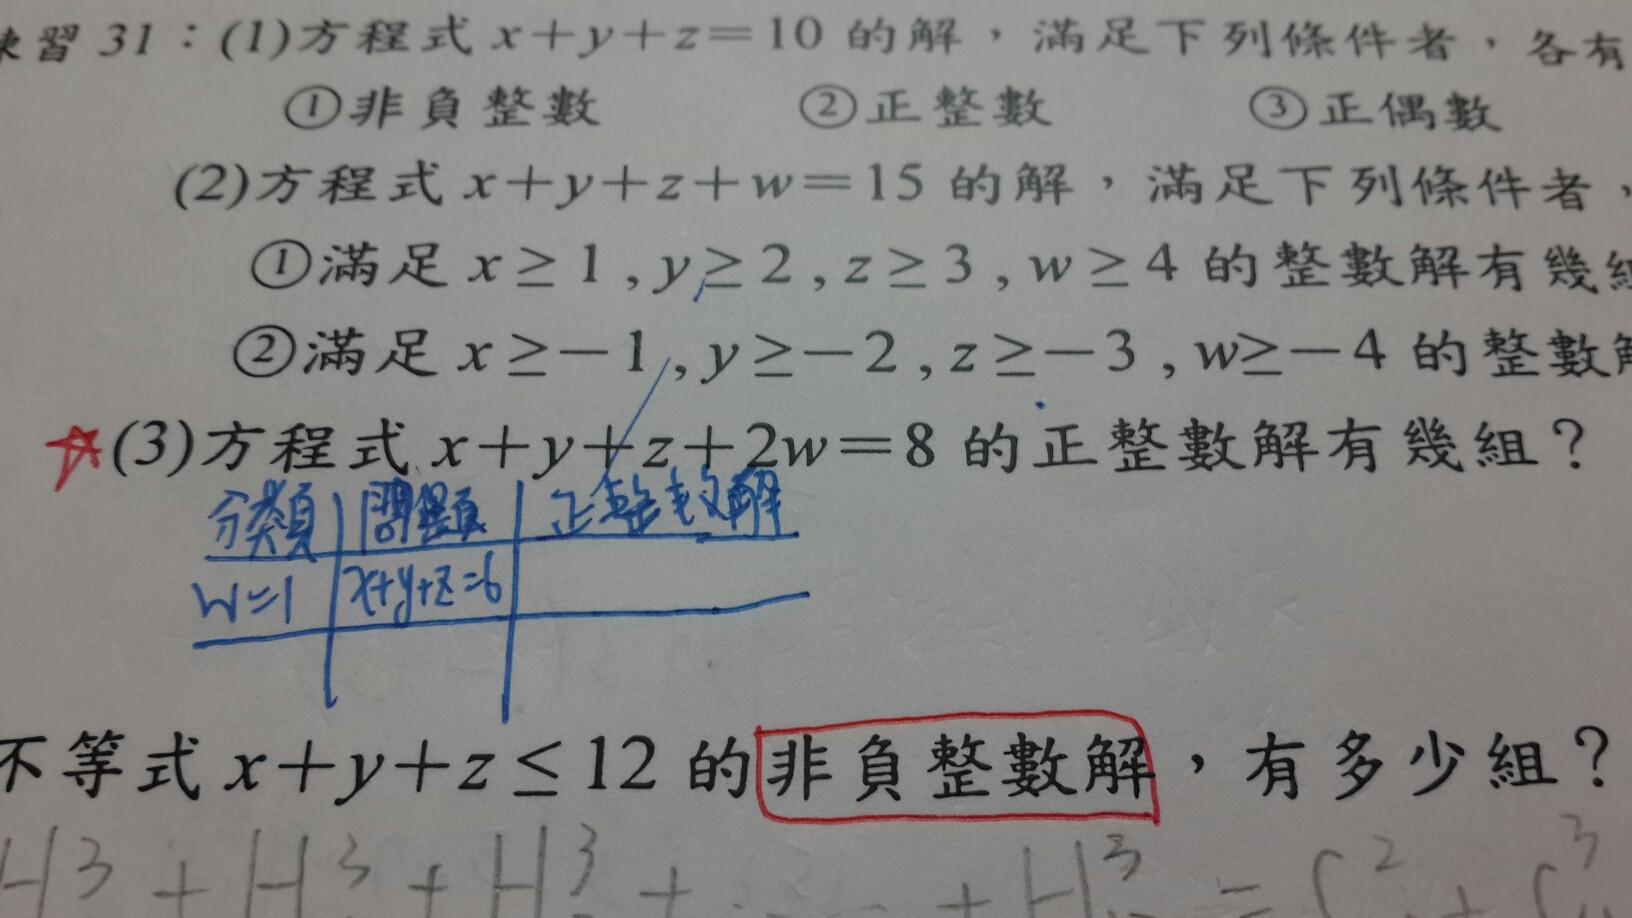 練習 31：(1)方程式 x+y+z=10 的解，滿足下列條件者，各有
①非負整數 ②正整數 ③正偶數
(2)方程式 x+y+z+w=15 的解，滿足下列條件者，
①滿足 x≥1,y≥2,z≥3,w≥4 的整數解有幾組
②滿足 x≥-1,y≥-2,z≥-3,w≥-4 的整數解
☆(3)方程式 x+y+z+2w=8 的正整數解有幾組？
分類 問題 正整數解
w=1 x+y+z=6
不等式 x+y+z≤12 的非負整數解，有多少組？
H3 + H3 + H3 + ... + H3 = C2 + C3